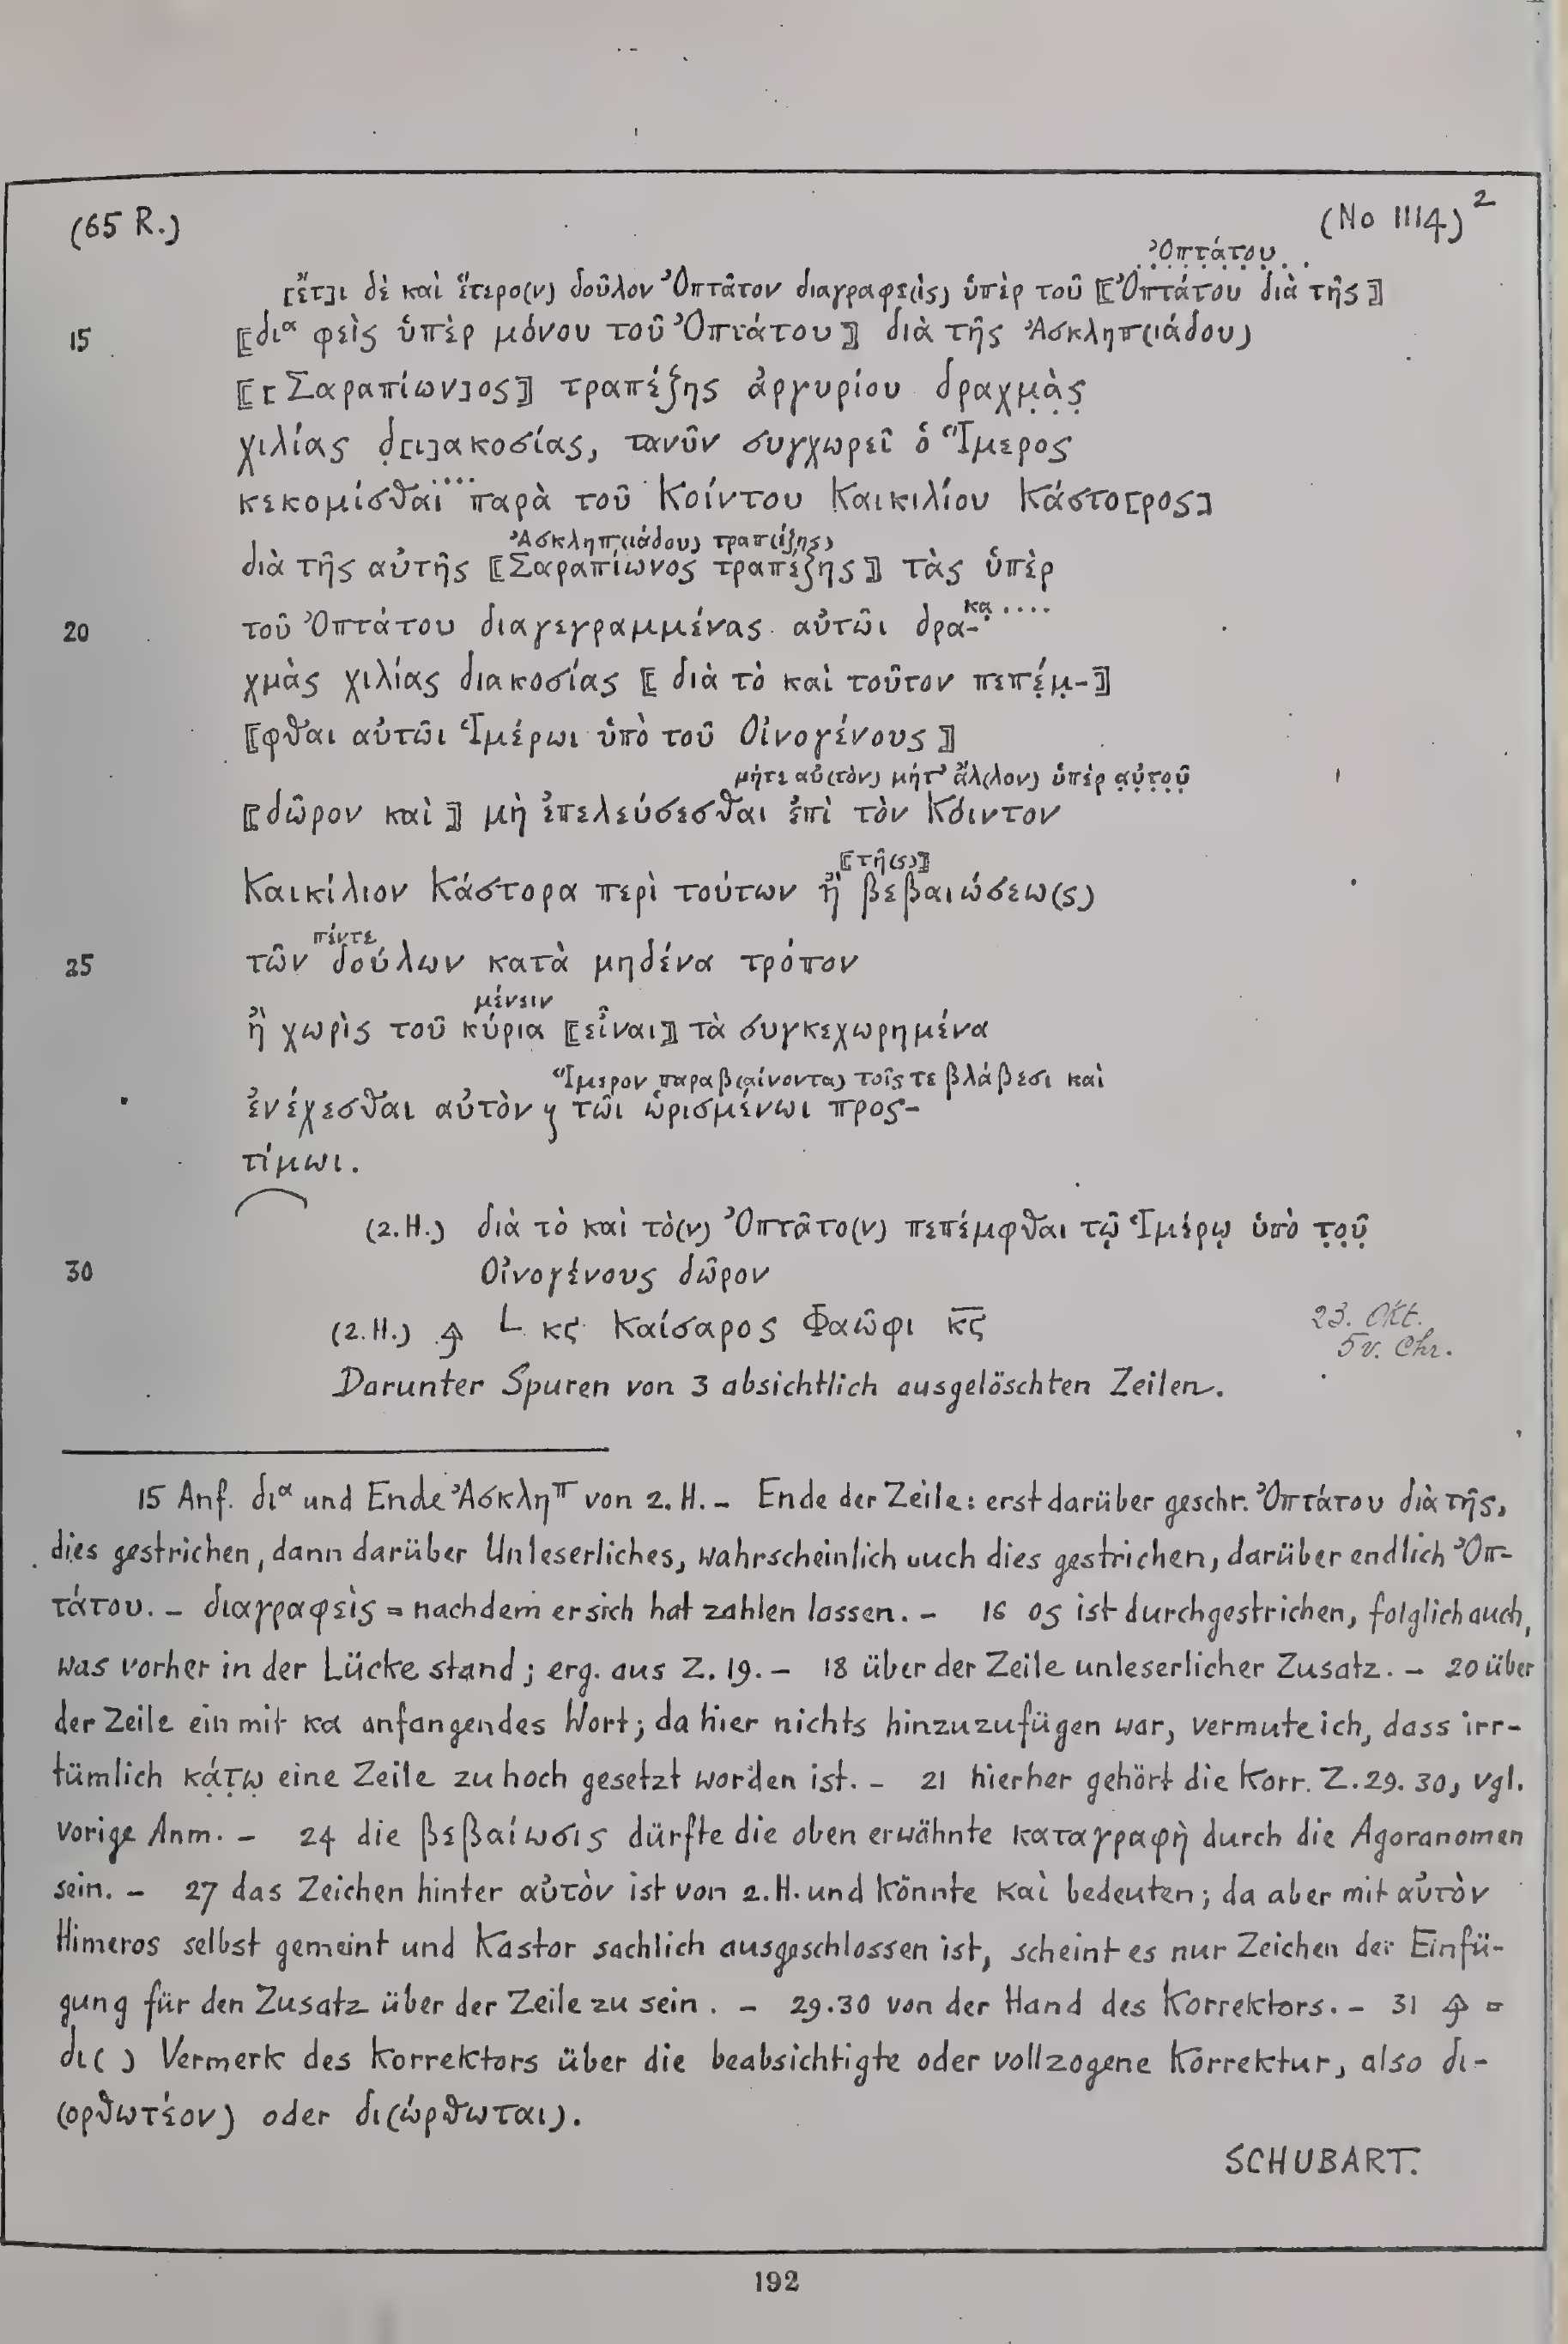 (65 R.)
(No 1114)²
Ὀπ̣τ̣ά̣τ̣ο̣υ̣ . .
[ἔτ]ι δὲ καὶ ἕτερο(ν) δοῦλον Ὀπτᾶτον διαγραφε(ὶς) ὑπὲρ τοῦ ⟦Ὀπτάτου διὰ τῆς⟧
15 ⟦δι^α φεὶς ὑπὲρ μόνου τοῦ Ὀπτάτου⟧ διὰ τῆς Ἀσκληπ(ιάδου)
⟦[Σαραπίων]ος⟧ τραπέζης ἀργυρίου δραχμ̣ὰ̣ς̣
χιλίας δ̣[ι]ακοσίας, τανῦν συγχωρεῖ ὁ Ἵμερος
κεκομίσθαι ... παρὰ τοῦ Κοίντου Καικιλίου Κάστο[ρος]
Ἀσκληπ(ιάδου) τραπ(έζης)
διὰ τῆς αὐτῆς ⟦Σαραπίωνος τραπέζης⟧ τὰς ὑπὲρ
κα̣ ....
20 τοῦ Ὀπτάτου διαγεγραμμένας αὐτῶι δρα-
χμὰς χιλίας διακοσίας ⟦διὰ τὸ καὶ τοῦτον πεπέ̣μ̣-⟧
⟦φθαι αὐτῶι Ἱμέρωι ὑπὸ τοῦ Οἰνογένους⟧
μήτε αὐ(τὸν) μήτ' ἄλ(λον) ὑπὲρ α̣ὐ̣τ̣ο̣ῦ̣
⟦δῶρον καὶ⟧ μὴ ἐπελεύσεσθαι ἐπὶ τὸν Κόιντον
⟦τῆ(ς)⟧
Καικίλιον Κάστορα περὶ τούτων ἢ βεβαιώσεω(ς)
πέντε
25 τῶν δούλων κατὰ μηδένα τρόπον
μένειν
ἢ χωρὶς τοῦ κύρια ⟦εἶναι⟧ τὰ συγκεχωρημένα
Ἵμερον παραβ(αίνοντα) τοῖς τε βλάβεσι καὶ
ἐνέχεσθαι αὐτὸν ʅ τῶι ὡρισμένωι προς-
τίμωι.
(2.H.) διὰ τὸ καὶ τὸ(ν) Ὀπτᾶτο(ν) πεπέμφθαι τῷ Ἱμέρῳ ὑπὸ τ̣ο̣ῦ̣
30 Οἰνογένους δῶρον
(2.H.) ⳨ L κϛ Καίσαρος Φαῶφι κ̅ϛ̅
23. Okt.
5 v. Chr.
Darunter Spuren von 3 absichtlich ausgelöschten Zeilen.
15 Anf. δι^α und Ende Ἀσκλη^π von 2. H. – Ende der Zeile: erst darüber geschr. Ὀπτάτου διὰ τῆς,
dies gestrichen, dann darüber Unleserliches, wahrscheinlich auch dies gestrichen, darüber endlich Ὀπ-
τάτου. – διαγραφεὶς = nachdem er sich hat zahlen lassen. – 16 ος ist durchgestrichen, folglich auch,
was vorher in der Lücke stand; erg. aus Z. 19. – 18 über der Zeile unleserlicher Zusatz. – 20 über
der Zeile ein mit κα anfangendes Wort; da hier nichts hinzuzufügen war, vermute ich, dass irr-
tümlich κά̣τ̣ω̣ eine Zeile zu hoch gesetzt worden ist. – 21 hierher gehört die Korr. Z. 29. 30, vgl.
vorige Anm. – 24 die βεβαίωσις dürfte die oben erwähnte καταγραφὴ durch die Agoranomen
sein. – 27 das Zeichen hinter αὐτὸν ist von 2. H. und könnte καὶ bedeuten; da aber mit αὐτὸν
Himeros selbst gemeint und Kastor sachlich ausgeschlossen ist, scheint es nur Zeichen der Einfü-
gung für den Zusatz über der Zeile zu sein. – 29.30 von der Hand des Korrektors. – 31 ⳨ =
δι( ) Vermerk des Korrektors über die beabsichtigte oder vollzogene Korrektur, also δι-
(ορθωτέον) oder δι(ώρθωται).
SCHUBART.
192